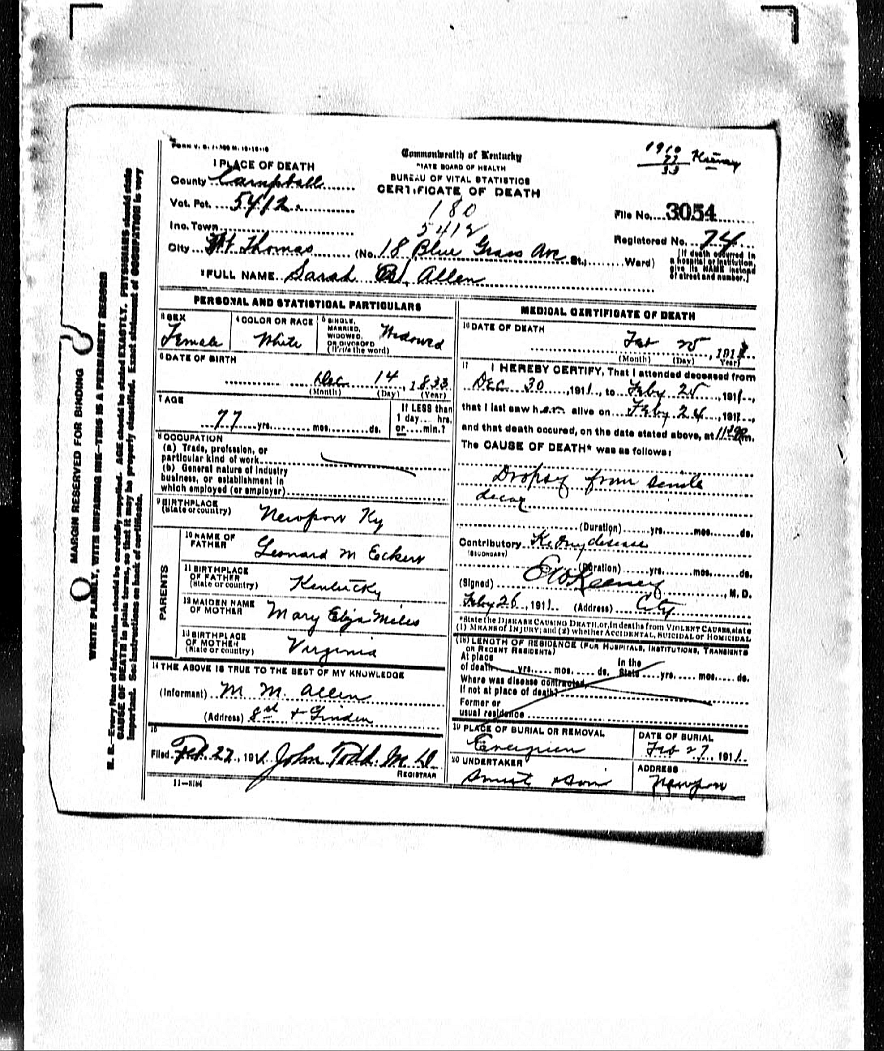 FORM V. S. 1-
1910
77
33
Keeney
Commonwealth of Kentucky
STATE BOARD OF HEALTH
BUREAU OF VITAL STATISTICS
CERTIFICATE OF DEATH
1 PLACE OF DEATH
County Campbell
Vot. Pct. 5412
180
5412
File No. 3054
Inc. Town
Registered No. 74
City Ft Thomas (No. 18 Blue Grass Ave St.; Ward)
[If death occurred in a hospital or institution, give its NAME instead of street and number.]
2 FULL NAME Sarah B. Allen
PERSONAL AND STATISTICAL PARTICULARS
3 SEX
Female
4 COLOR OR RACE
White
5 SINGLE, MARRIED, WIDOWED, OR DIVORCED (Write the word)
Widowed
6 DATE OF BIRTH
Dec 14, 1833
(Month) (Day) (Year)
7 AGE
77 yrs. mos. ds.
If LESS than 1 day hrs. or min.?
8 OCCUPATION
(a) Trade, profession, or particular kind of work
(b) General nature of industry business, or establishment in which employed (or employer)
9 BIRTHPLACE
(State or country) Newport Ky
PARENTS
10 NAME OF FATHER Leonard M Eckert
11 BIRTHPLACE OF FATHER (State or country) Kentucky
12 MAIDEN NAME OF MOTHER Mary Eliza Miles
13 BIRTHPLACE OF MOTHER (State or country) Virginia
14 THE ABOVE IS TRUE TO THE BEST OF MY KNOWLEDGE
(Informant) M. M. Allen
(Address) 8st + Linden
15
Filed Feb 27, 1911. John Todd M D
REGISTRAR
11—3184
MEDICAL CERTIFICATE OF DEATH
16 DATE OF DEATH
Feb 25, 1911
(Month) (Day) Year
17 I HEREBY CERTIFY, That I attended deceased from
Dec 30, 1911, to Feby 25, 1911,
that I last saw her alive on Feby 24, 1911,
and that death occured, on the date stated above, at m.
The CAUSE OF DEATH* was as follows:
Dropsy from senile
decay
(Duration) yrs. mos. ds.
Contributory Kidney disease
(SECONDARY)
(Duration) yrs. mos. ds.
(Signed) Keeney, M. D.
Feby 26, 1911. (Address) City
*State the DISEASE CAUSING DEATH, or, in deaths from VIOLENT CAUSES, state
(1) MEANS OF INJURY; and (2) whether ACCIDENTAL, SUICIDAL or HOMICIDAL
(18) LENGTH OF RESIDENCE (FOR HOSPITALS, INSTITUTIONS, TRANSIENTS OR RECENT RESIDENTS)
At place of death yrs. mos. ds. In the State yrs. mos. ds.
Where was disease contracted,
If not at place of death?
Former or
usual residence
19 PLACE OF BURIAL OR REMOVAL
Evergreen
DATE OF BURIAL
Feb 27, 1911.
20 UNDERTAKER
Smith & Son
ADDRESS
Newport
MARGIN RESERVED FOR BINDING
WRITE PLAINLY, WITH UNFADING INK—THIS IS A PERMANENT RECORD
N. B.—Every item of information should be carefully supplied. AGE should be stated EXACTLY. PHYSICIANS should state
CAUSE OF DEATH in plain terms, so that it may be properly classified. Exact statement of OCCUPATION is very
important. See instructions on back of certificate.